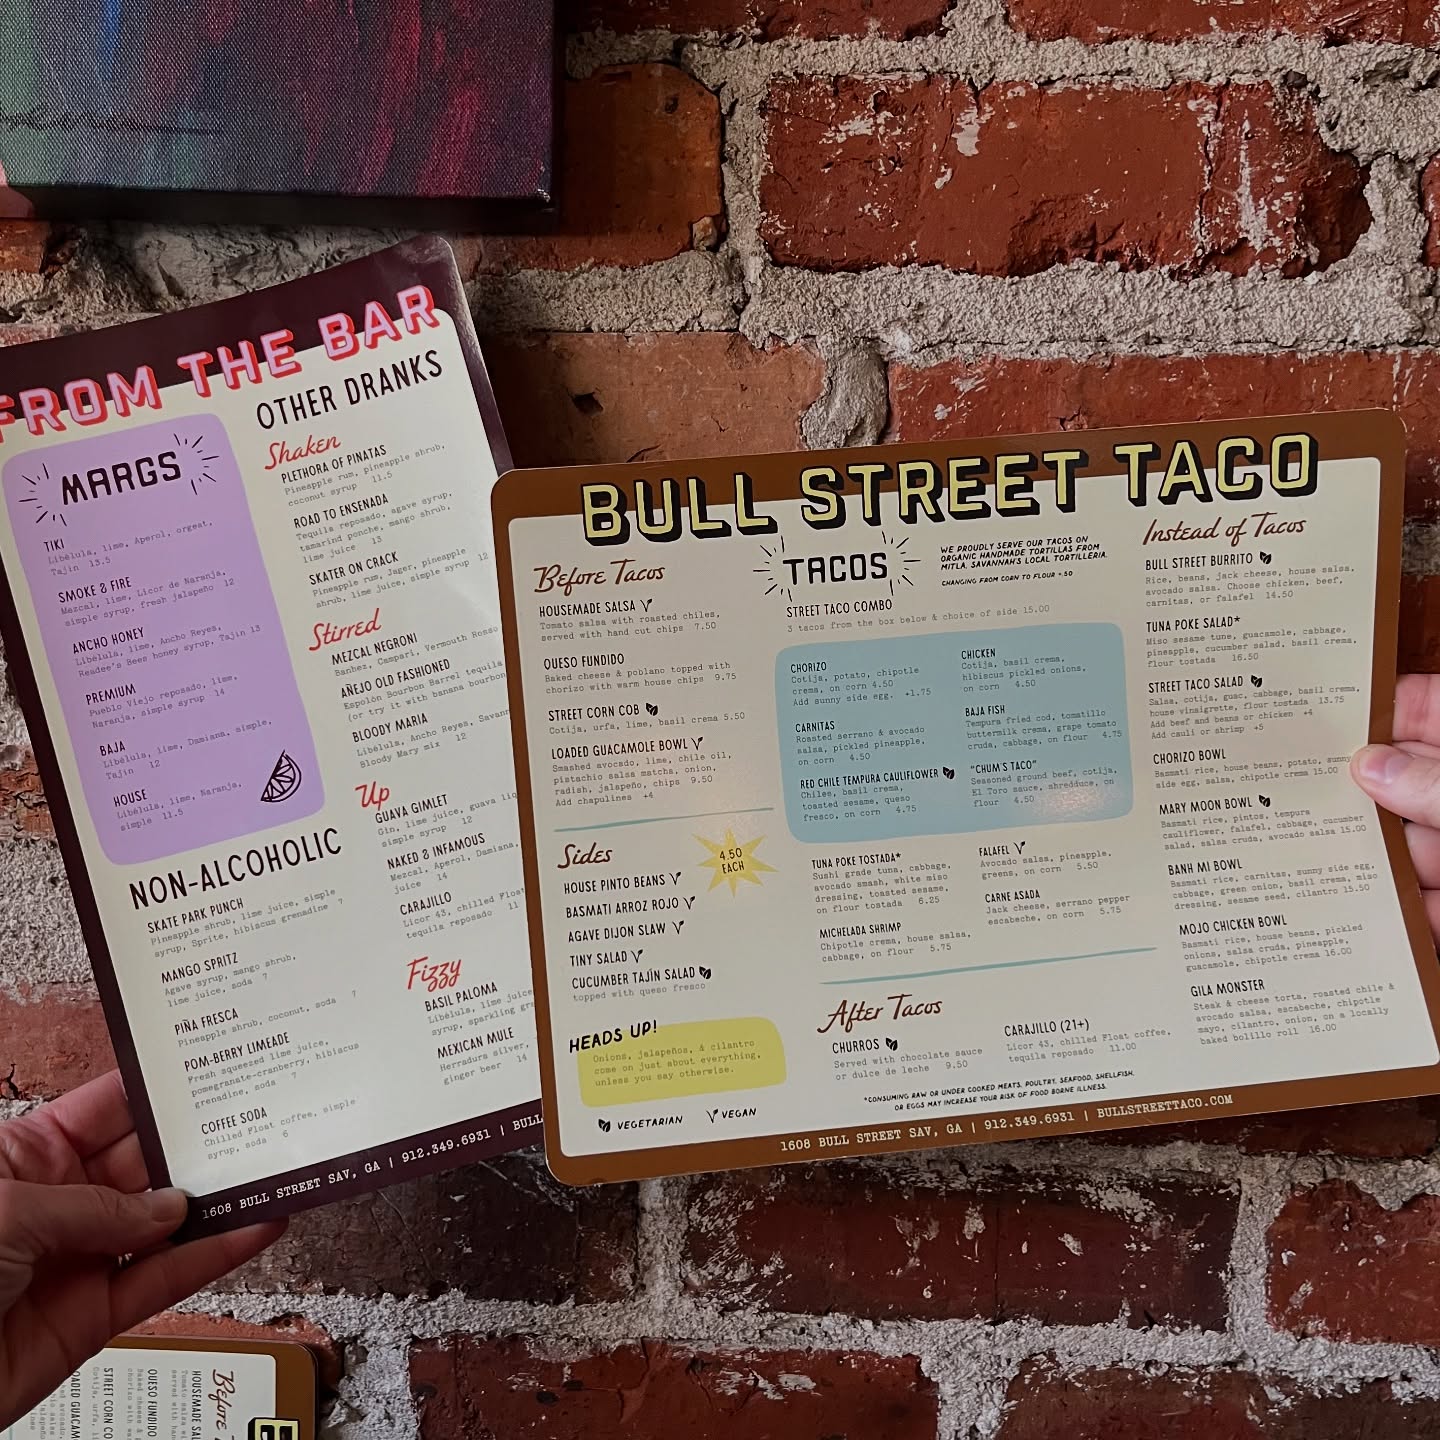 FROM THE BAR
MARGS
TIKI
Libélula, lime, Aperol, orgeat,
Tajin 13.5
SMOKE & FIRE
Mezcal, lime, Licor de Naranja,
simple syrup, fresh jalapeño 12
ANCHO HONEY
Libélula, lime, Ancho Reyes,
Readee's Bees honey syrup, Tajin 13
PREMIUM
Pueblo Viejo reposado, lime,
Naranja, simple syrup 14
BAJA
Libélula, lime, Damiana, simple,
Tajin 12
HOUSE
Libélula, lime, Naranja,
simple 11.5
NON-ALCOHOLIC
SKATE PARK PUNCH
Pineapple shrub, lime juice, simple
syrup, Sprite, hibiscus grenadine 7
MANGO SPRITZ
Agave syrup, mango shrub,
lime juice, soda 7
PIÑA FRESCA
Pineapple shrub, coconut, soda 7
POM-BERRY LIMEADE
Fresh squeezed lime juice,
pomegranate-cranberry, hibiscus
grenadine, soda 7
COFFEE SODA
Chilled Float coffee, simple
syrup, soda 6
OTHER DRANKS
Shaken
PLETHORA OF PINATAS
Pineapple rum, pineapple shrub,
coconut syrup 11.5
ROAD TO ENSENADA
Tequila reposado, agave syrup,
tamarind ponche, mango shrub,
lime juice 13
SKATER ON CRACK
Pineapple rum, Jager, pineapple
shrub, lime juice, simple syrup 12
Stirred
MEZCAL NEGRONI
Banhez, Campari, Vermouth Rosso
AÑEJO OLD FASHIONED
Espolòn Bourbon Barrel tequila
(or try it with banana bourbon
BLOODY MARIA
Libélula, Ancho Reyes, Savann
Bloody Mary mix 12
Up
GUAVA GIMLET
Gin, lime juice, guava liq
simple syrup 12
NAKED & INFAMOUS
Mezcal, Aperol, Damiana,
juice 14
CARAJILLO
Licor 43, chilled Float
tequila reposado 11
Fizzy
BASIL PALOMA
Libélula, lime juice
syrup, sparkling gra
MEXICAN MULE
Herradura silver,
ginger beer 14
1608 BULL STREET SAV, GA | 912.349.6931 | BULL
BULL STREET TACO
Before Tacos
HOUSEMADE SALSA
Tomato salsa with roasted chiles,
served with hand cut chips 7.50
QUESO FUNDIDO
Baked cheese & poblano topped with
chorizo with warm house chips 9.75
STREET CORN COB
Cotija, urfa, lime, basil crema 5.50
LOADED GUACAMOLE BOWL
Smashed avocado, lime, chile oil,
pistachio salsa matcha, onion,
radish, jalapeño, chips 9.50
Add chapulines +4
Sides
4.50
EACH
HOUSE PINTO BEANS
BASMATI ARROZ ROJO
AGAVE DIJON SLAW
TINY SALAD
CUCUMBER TAJÌN SALAD
topped with queso fresco
HEADS UP!
Onions, jalapeños, & cilantro
come on just about everything,
unless you say otherwise.
VEGETARIAN VEGAN
TACOS
WE PROUDLY SERVE OUR TACOS ON
ORGANIC HANDMADE TORTILLAS FROM
MITLA, SAVANNAH'S LOCAL TORTILLERIA.
CHANGING FROM CORN TO FLOUR +.50
STREET TACO COMBO
3 tacos from the box below & choice of side 15.00
CHORIZO
Cotija, potato, chipotle
crema, on corn 4.50
Add sunny side egg. +1.75
CARNITAS
Roasted serrano & avocado
salsa, pickled pineapple,
on corn 4.50
RED CHILE TEMPURA CAULIFLOWER
Chiles, basil crema,
toasted sesame, queso
fresco, on corn 4.75
CHICKEN
Cotija, basil crema,
hibiscus pickled onions,
on corn 4.50
BAJA FISH
Tempura fried cod, tomatillo
buttermilk crema, grape tomato
cruda, cabbage, on flour 4.75
"CHUM'S TACO"
Seasoned ground beef, cotija,
El Toro sauce, shredduce, on
flour 4.50
TUNA POKE TOSTADA*
Sushi grade tuna, cabbage,
avocado smash, white miso
dressing, toasted sesame,
on flour tostada 6.25
MICHELADA SHRIMP
Chipotle crema, house salsa,
cabbage, on flour 5.75
FALAFEL
Avocado salsa, pineapple,
greens, on corn 5.50
CARNE ASADA
Jack cheese, serrano pepper
escabeche, on corn 5.75
After Tacos
CHURROS
Served with chocolate sauce
or dulce de leche 9.50
CARAJILLO (21+)
Licor 43, chilled Float coffee,
tequila reposado 11.00
*CONSUMING RAW OR UNDER COOKED MEATS, POULTRY, SEAFOOD, SHELLFISH,
OR EGGS MAY INCREASE YOUR RISK OF FOOD BORNE ILLNESS.
Instead of Tacos
BULL STREET BURRITO
Rice, beans, jack cheese, house salsa,
avocado salsa. Choose chicken, beef,
carnitas, or falafel 14.50
TUNA POKE SALAD*
Miso sesame tune, guacamole, cabbage,
pineapple, cucumber salad, basil crema,
flour tostada 16.50
STREET TACO SALAD
Salsa, cotija, guac, cabbage, basil crema,
house vinaigrette, flour tostada 13.75
Add beef and beans or chicken +4
Add cauli or shrimp +5
CHORIZO BOWL
Basmati rice, house beans, potato, sunny
side egg, salsa, chipotle crema 15.00
MARY MOON BOWL
Basmati rice, pintos, tempura
cauliflower, falafel, cabbage, cucumber
salad, salsa cruda, avocado salsa 15.00
BANH MI BOWL
Basmati rice, carnitas, sunny side egg,
cabbage, green onion, basil crema, miso
dressing, sesame seed, cilantro 15.50
MOJO CHICKEN BOWL
Basmati rice, house beans, pickled
onions, salsa cruda, pineapple,
guacamole, chipotle crema 16.00
GILA MONSTER
Steak & cheese torta, roasted chile &
avocado salsa, escabeche, chipotle
mayo, cilantro, onion, on a locally
baked bolillo roll 16.00
1608 BULL STREET SAV, GA | 912.349.6931 | BULLSTREETTACO.COM
Before
HOUSEMADE SAL
QUESO FUNDIDO
STREET CORN CO
OADED GUACAM